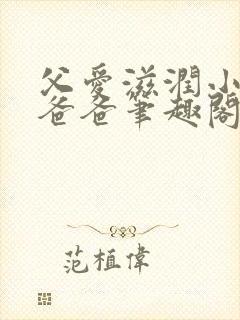 父愛滋潤小
爸爸筆趣閣
范植偉